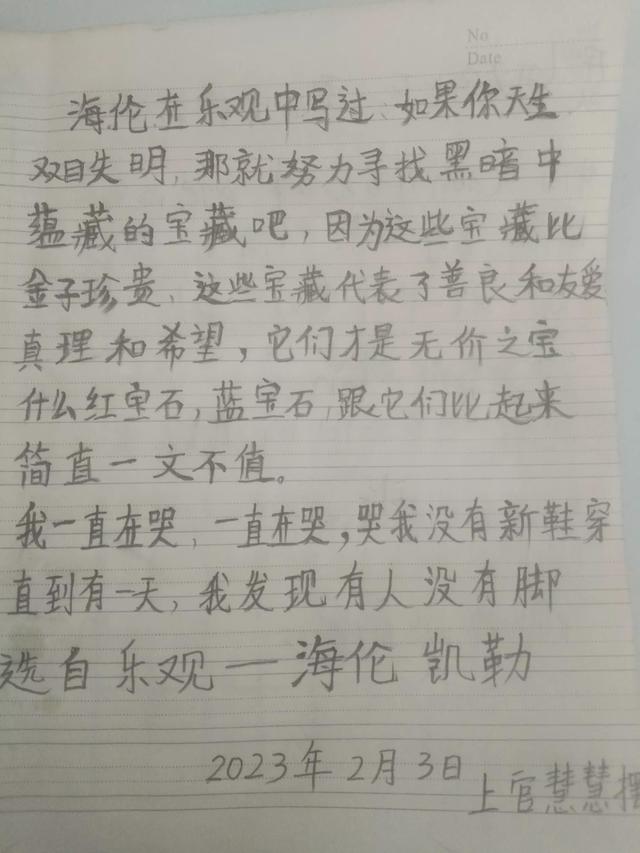 No
Date
海伦在乐观中写过、如果你天生
双目失明，那就努力寻找黑暗中
蕴藏的宝藏吧，因为这些宝藏比
金子珍贵、这些宝藏代表了善良和友爱
真理和希望，它们才是无价之宝
什么红宝石，蓝宝石，跟它们比起来
简直一文不值。
我一直在哭，一直在哭，哭我没有新鞋穿
直到有一天，我发现有人没有脚
选自乐观一海伦凯勒
2023年2月3日
上官慧慧摆